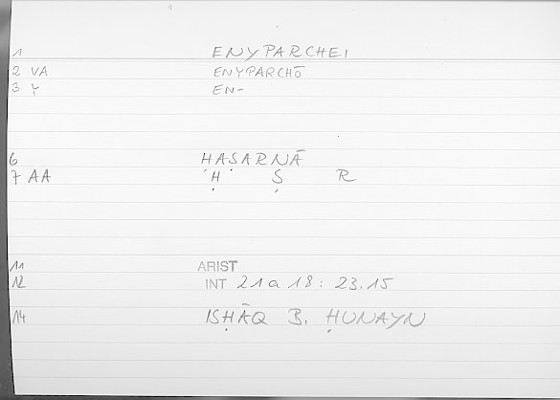 1 ENYPARCHEI
2 VA ENYPARCHŌ
3 Y EN-
6 ḤAṢARNĀ
7 AA Ḥ Ṣ R
11 ARIST
12 INT 21a18: 23.15
14 ISḤĀQ B. ḤUNAYN